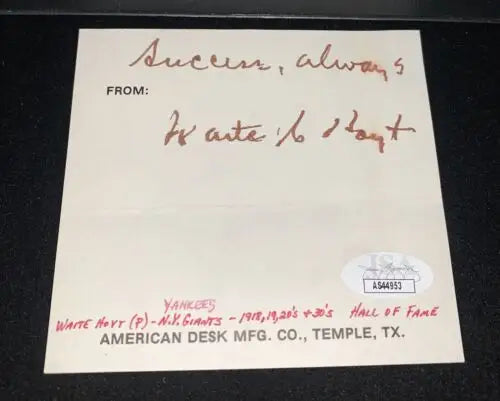 Success, always
FROM:
Waite C Hoyt
JSA
AS44953
YANKEES
WAITE HOYT (P) - N.Y. GIANTS - 1918, 19, 20's + 30's HALL OF FAME
AMERICAN DESK MFG. CO., TEMPLE, TX.